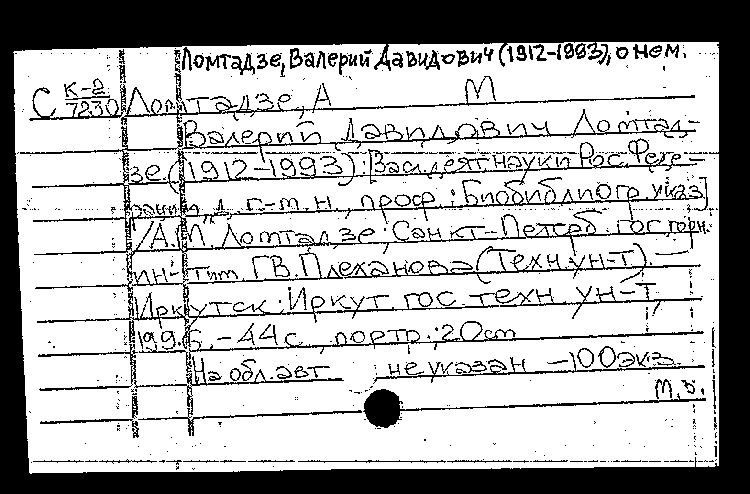 Ломтадзе, Валерий Давидович (1912-1993), о нем.
С К-2/7230 Ломтадзе, А М
Валерий Давидович Ломтад-
зе (1912-1993): [Засл. деят. науки Рос. Феде-
рации, д. г.-м. н., проф.: Биобиблиогр. указ]
/А.М. Ломтадзе; Санкт-Петерб. гос. горн.
ин-т им. Г.В. Плеханова (Техн. ун-т). -
Иркутск: Иркут. гос. техн. ун-т,
1996. - 44 с., портр.; 20 cm
На обл. авт. не указан - 100 экз.